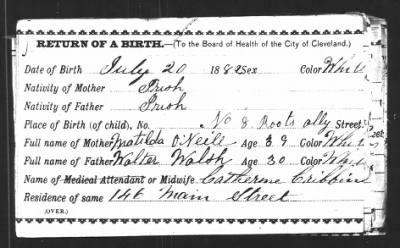 RETURN OF A BIRTH.—(To the Board of Health of the City of Cleveland.)
Date of Birth July 20 1882 Sex Color White
Nativity of Mother Irish
Nativity of Father Irish
Place of Birth (of child), No. No 8 Roots ally Street.
Full name of Mother Matilda O'Neill Age 39 Color White
Full name of Father Walter Walsh Age 30 Color White
Name of Medical Attendant or Midwife Catherine Cribbin
Residence of same 146 Main Street
(OVER.)